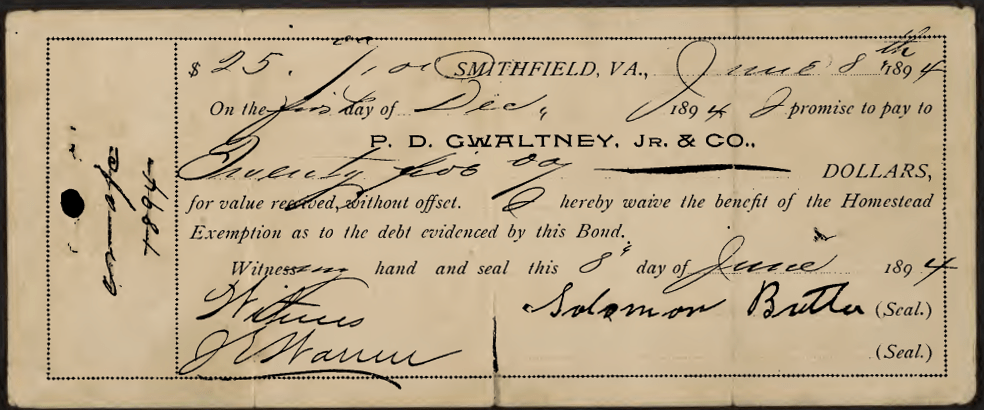 $ 25. SMITHFIELD, VA., June 8th 1894
On the first day of Dec, 1894 I promise to pay to
P. D. GWALTNEY, JR. & CO.,
Twenty five DOLLARS,
for value received, without offset. I hereby waive the benefit of the Homestead
Exemption as to the debt evidenced by this Bond.
Witness my hand and seal this 8" day of June 1894
Witness Solomon Butler (Seal.)
J E Warren (Seal.)
1894